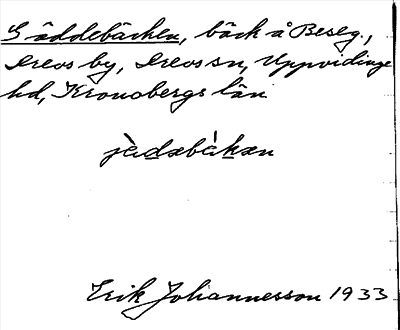 Gäddebäcken, bäck å Beseg.,
Drevs by, Drevs sn, Uppvidinge
hd, Kronobergs län
Erik Johannesson 1933